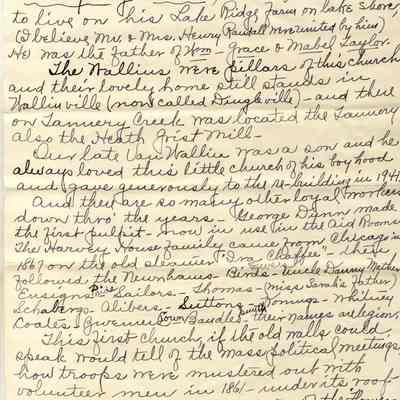 to live on his Lake Ridge farm on lake shore,
(I believe Mr. & Mrs. Henry Randall were united by him)
He was the father of Wm - Grace & Mabel Taylor.
The Wallins were pillars of this church
and their lovely home still stands in
Wallinville (now called Dingleville) - and there
on Tannery Creek was located the Tannery
also the Heath Grist Mill -
Our late Van Wallin was a son and he
always loved this little church of his boyhood
and gave generously to the re-building in 194
And there are so many other loyal workers
down thro' the years - George Dunn made
the first pulpit - now in use in the Aid Rooms
The Harvey House family came from Chicago in
1867 on the old steamer "Ira Chaffee" - then
followed the Newnhams - Birds - Uncle Danny
Ensigns - Sailors - Thomas - (Miss Sarah's father)
Schabergs - Alibers - Suttons - Jennings - Whitney
Coates - Gwennen Town Baudle Smith - their names are legion,
This first church, if the old walls could
speak would tell of the Mass political meetings,
how troops were mustered out with
volunteer men in 1861 - under its roof -